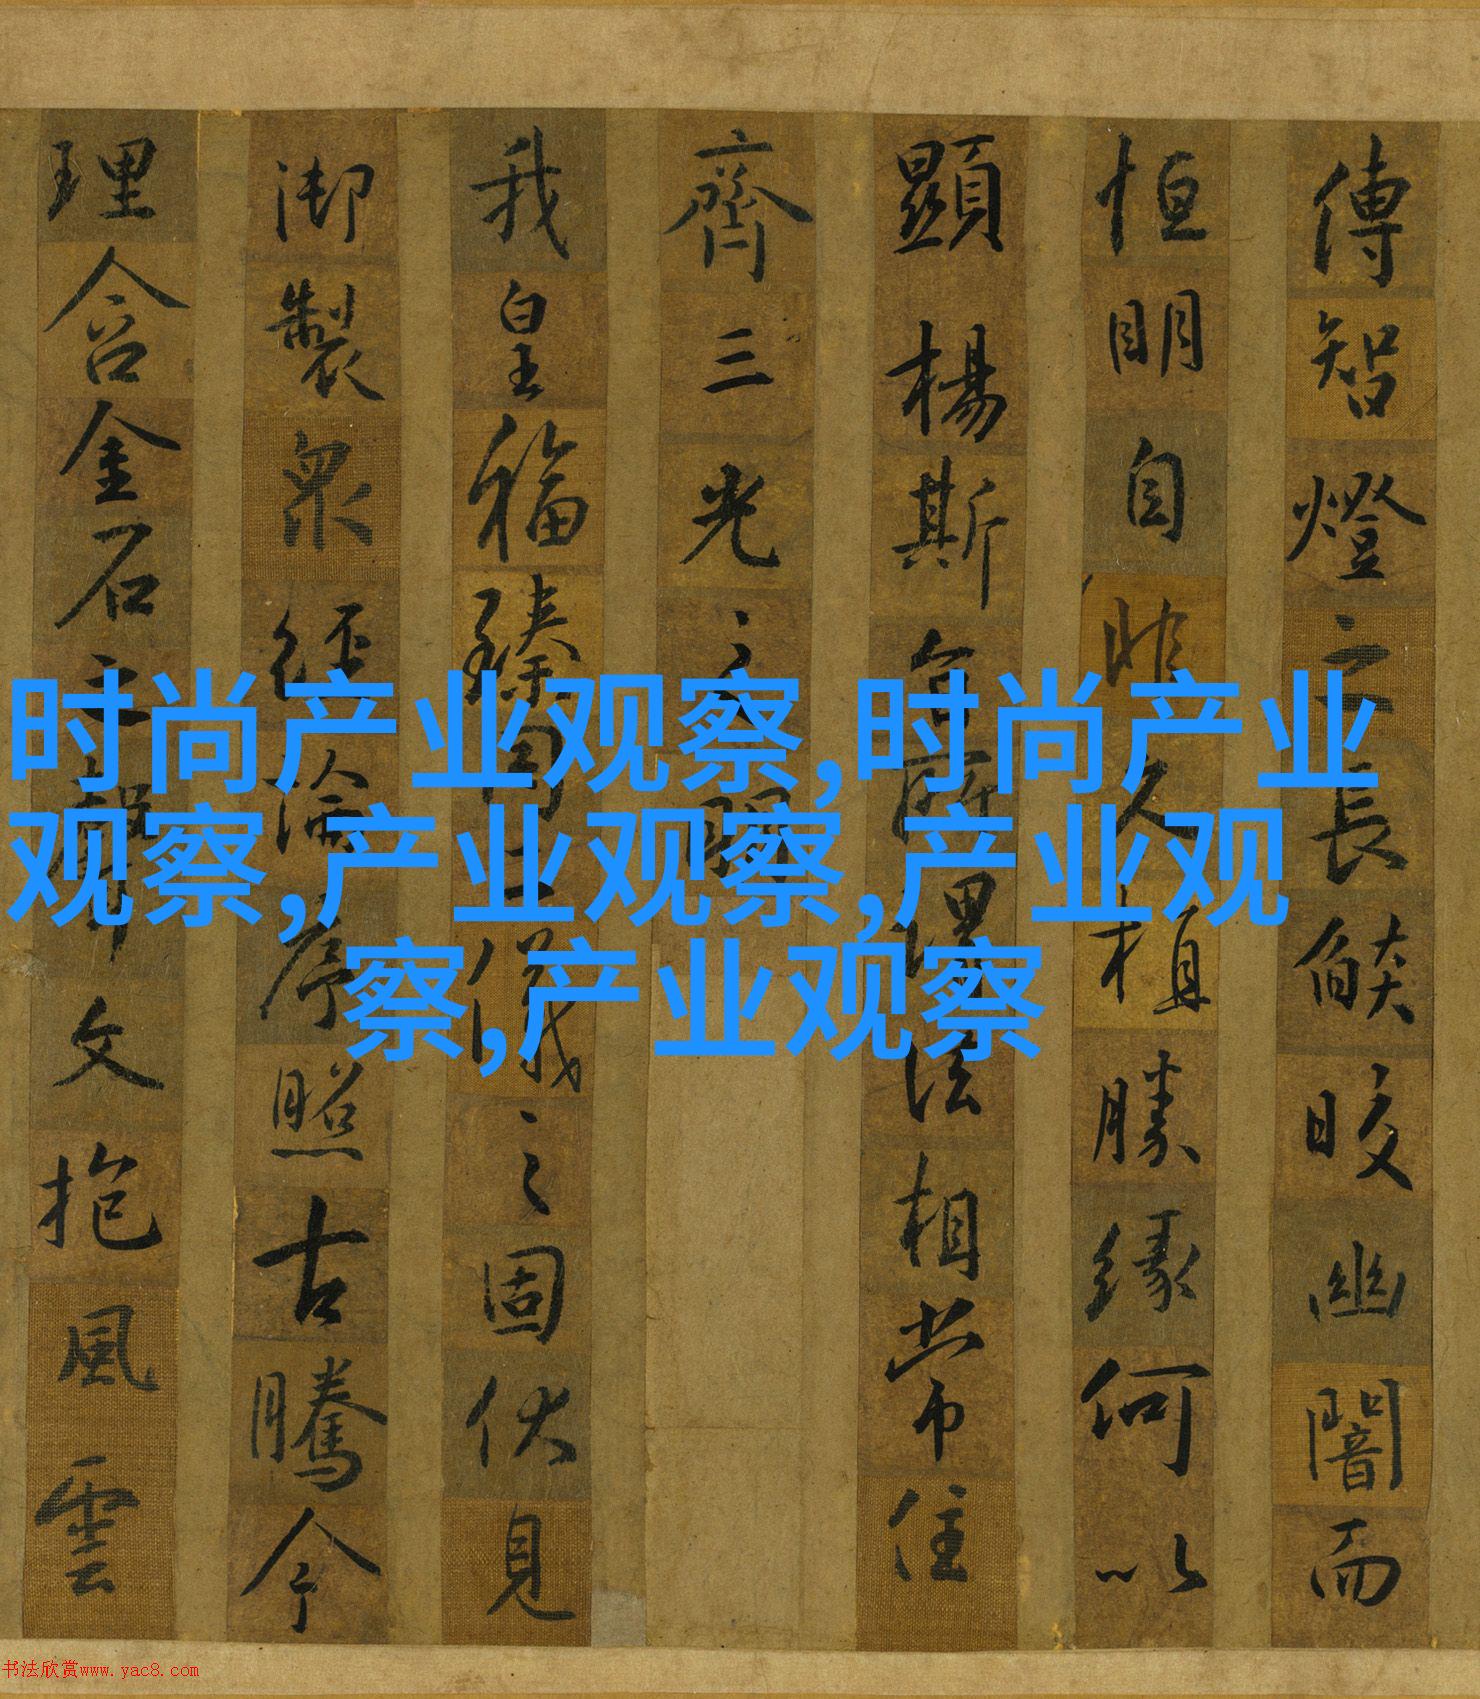 傳智燈之長燄皎幽闇而
恒明自非久植勝緣何以
顯楊斯旨所謂法相常住
齊三光之明
我皇福臻同二儀之固伏見
御製眾經論序照古騰今
理含金石之聲文抱風雲
时尚产业观察,时尚产业
观察,产业观察,产业观
察,产业观察
书法欣赏www.yac8.com